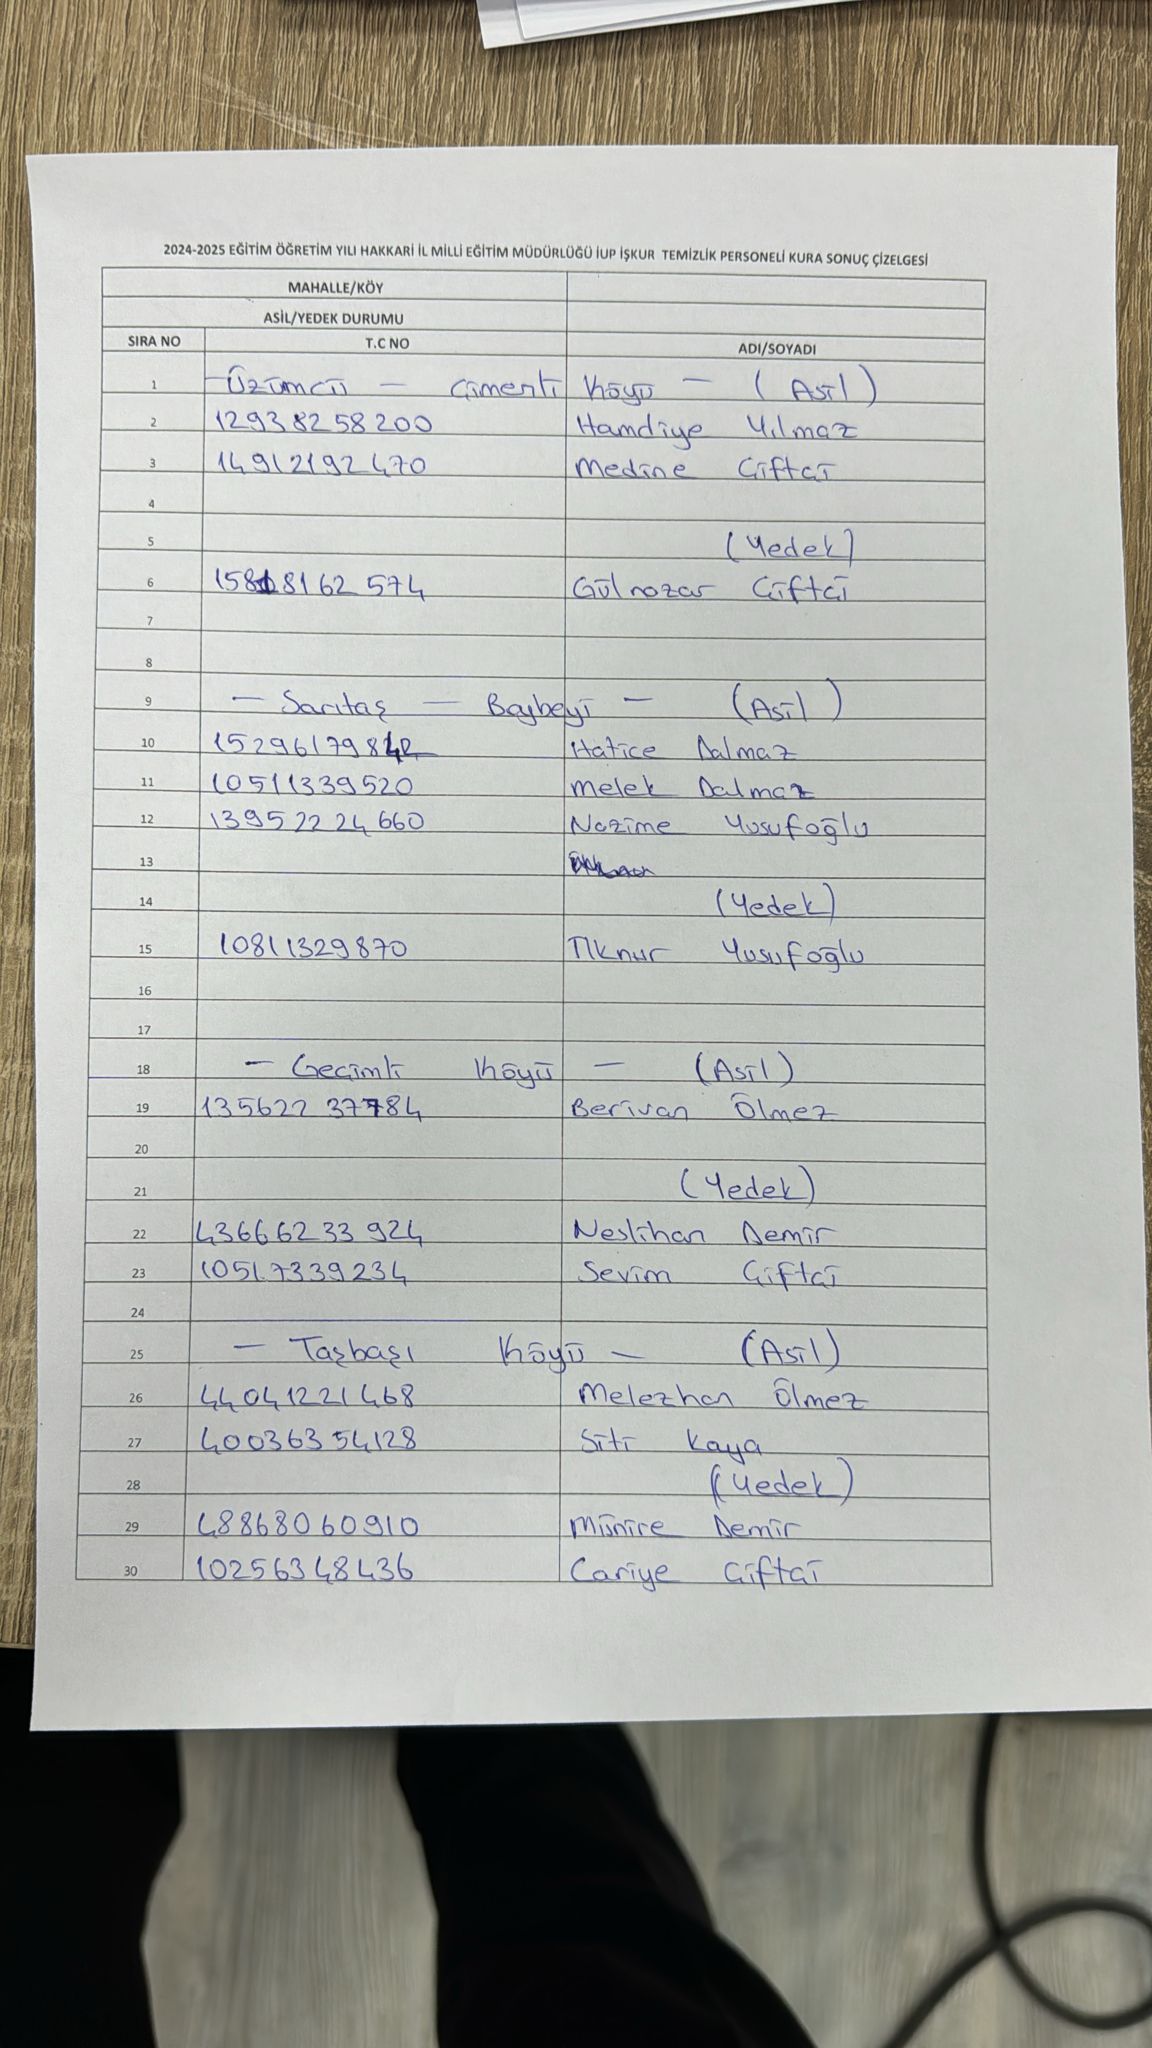 2024-2025 EĞİTİM ÖĞRETİM YILI HAKKARİ İL MİLLİ EĞİTİM MÜDÜRLÜĞÜ İUP İŞKUR TEMİZLİK PERSONELİ KURA SONUÇ ÇİZELGESİ
MAHALLE/KÖY
ASİL/YEDEK DURUMU
SIRA NO T.C NO ADI/SOYADI
1 - Üzümcü - Çimenli Köyü - (Asil)
2 12938258200 Hamdiye Yılmaz
3 14912192470 Medine Çiftçi
4
5 (Yedek)
6 15818162574 Gülnazar Çiftçi
7
8
9 - Sarıtaş - Baybeyi - (Asil)
10 Hatice Dalmaz
11 10511339520 Melek Dalmaz
12 13952224660 Nazime Yusufoğlu
13
14 (Yedek)
15 10811329870 İlknur Yusufoğlu
16
17
18 - Geçimli Köyü - (Asil)
19 13562237784 Berivan Ölmez
20
21 (Yedek)
22 43666233924 Neslihan Demir
23 10517339234 Sevim Çiftçi
24
25 - Taşbaşı Köyü - (Asil)
26 44041221468 Melezhan Ölmez
27 40036354128 Siti Kaya
28 (Yedek)
29 48868060910 Münire Demir
30 10256348436 Cariye Çiftçi